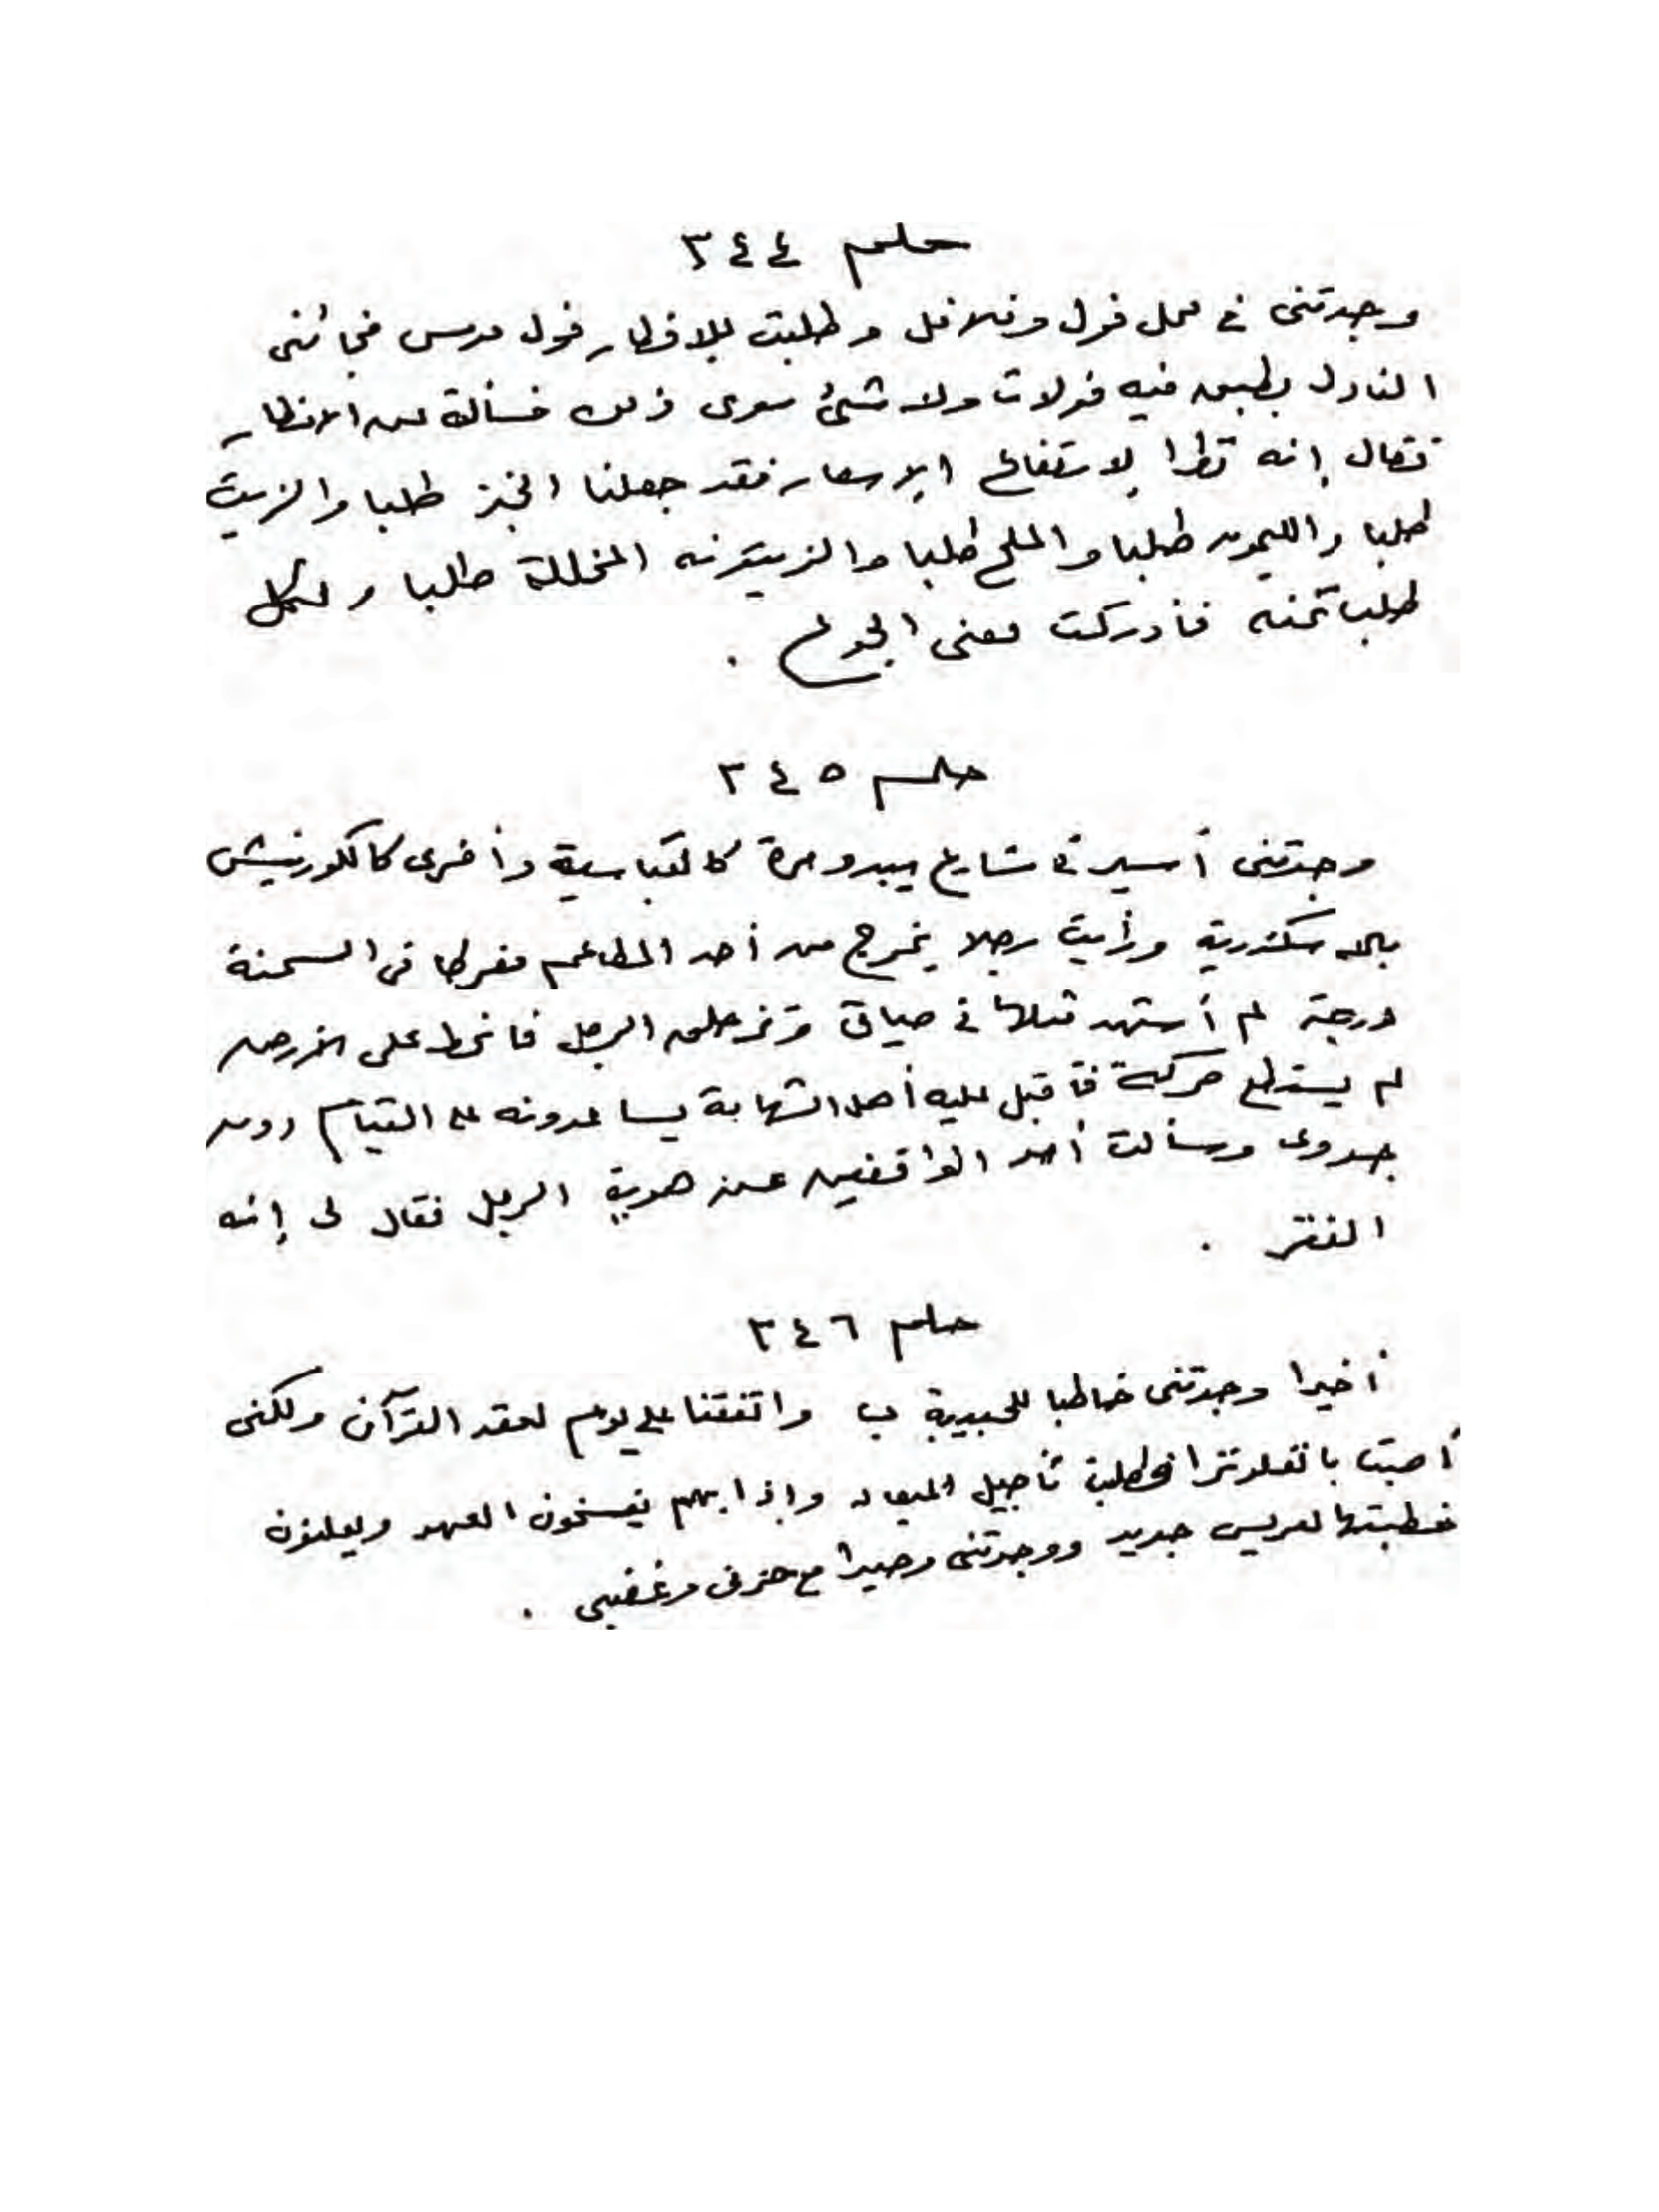 حلم ٣٤٤
وجدتنى فى محل فول وفلافل وطلبت للافطار فول مدمس فجائنى
النادل بطبق فيه فولات ولا شئ سوى ذلك فسألته عن الافطار
فقال إنه نظرا لإرتفاع الإسعار فقد جعلنا الخبز طلبا والزيت
طلبا والليمون طلبا والملح طلبا والزيتونه المخللة طلبا ولكل
طلب ثمنه فأدركت معنى الجوع .
حلم ٣٤٥
وجدتنى أسير فى شارع يبدو مرة كالعباسية وأخرى كالكورنيش
بالاسكندرية ورأيت رجلا يخرج من أحد المطاعم مفرطا فى السمنة
درجة لم أشهد مثلها فى حياتى وتزحلق الرجل فانحط على الارض
لم يستطع حركة فأقبل عليه أهل الشهامة يساعدونه على القيام دون
جدوى وسألت أحد الواقفين عن هوية الرجل فقال لى إنه
الفقر .
حلم ٣٤٦
أخيرا وجدتنى خاطبا للحبيبة ب واتفقنا على يوم لعقد القرآن ولكنى
أصبت بانفلونزا فطلبت تأجيل الميعاد وإذا بهم يفسخون العهد ويعلنون
خطبتها لعريس جديد ووجدتنى وحيدا مع حزنى وغضبى .